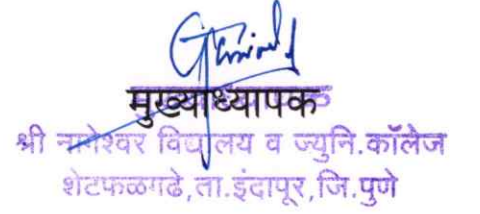 मुख्याध्यापक
श्री नागेश्वर विद्यालय व ज्युनि.कॉलेज
शेटफळगढे,ता.इंदापूर,जि.पुणे